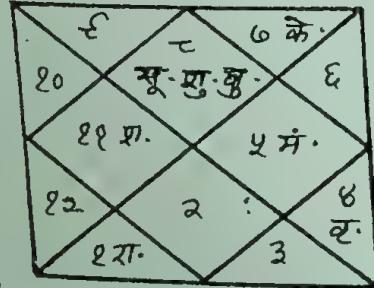 ९ ८ ७ के.
१० सू. शु. बु. ६
११ श. ५ मं.
१२ २ : ४
१ रा. ३